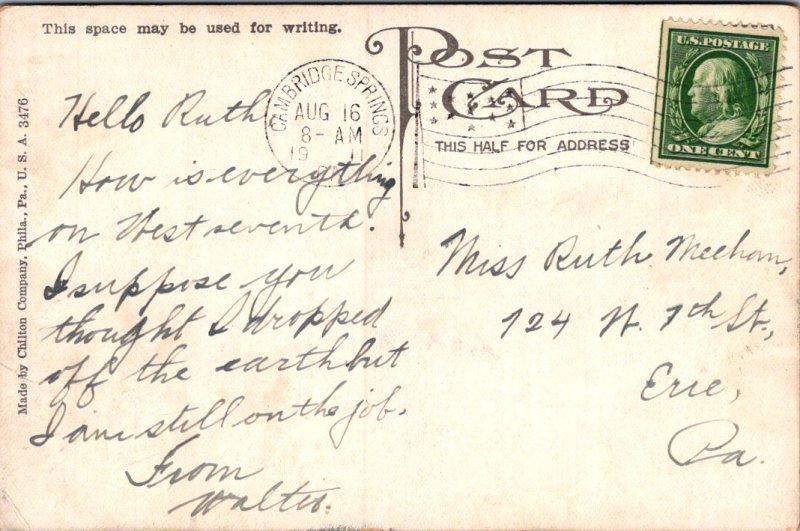 This space may be used for writing.
POST CARD
THIS HALF FOR ADDRESS
CAMBRIDGE SPRINGS
AUG 16
8-AM
1911
PA.
U.S. POSTAGE
ONE CENT
Made by Chilton Company, Phila., Pa., U. S. A. 3476
Hello Ruth
How is everything
on West seventh.
I suppose you
thought I dropped
off the earth but
I am still on the job.
From
Walter.
Miss Ruth Meehan,
124 W. 7th St.,
Erie,
Pa.